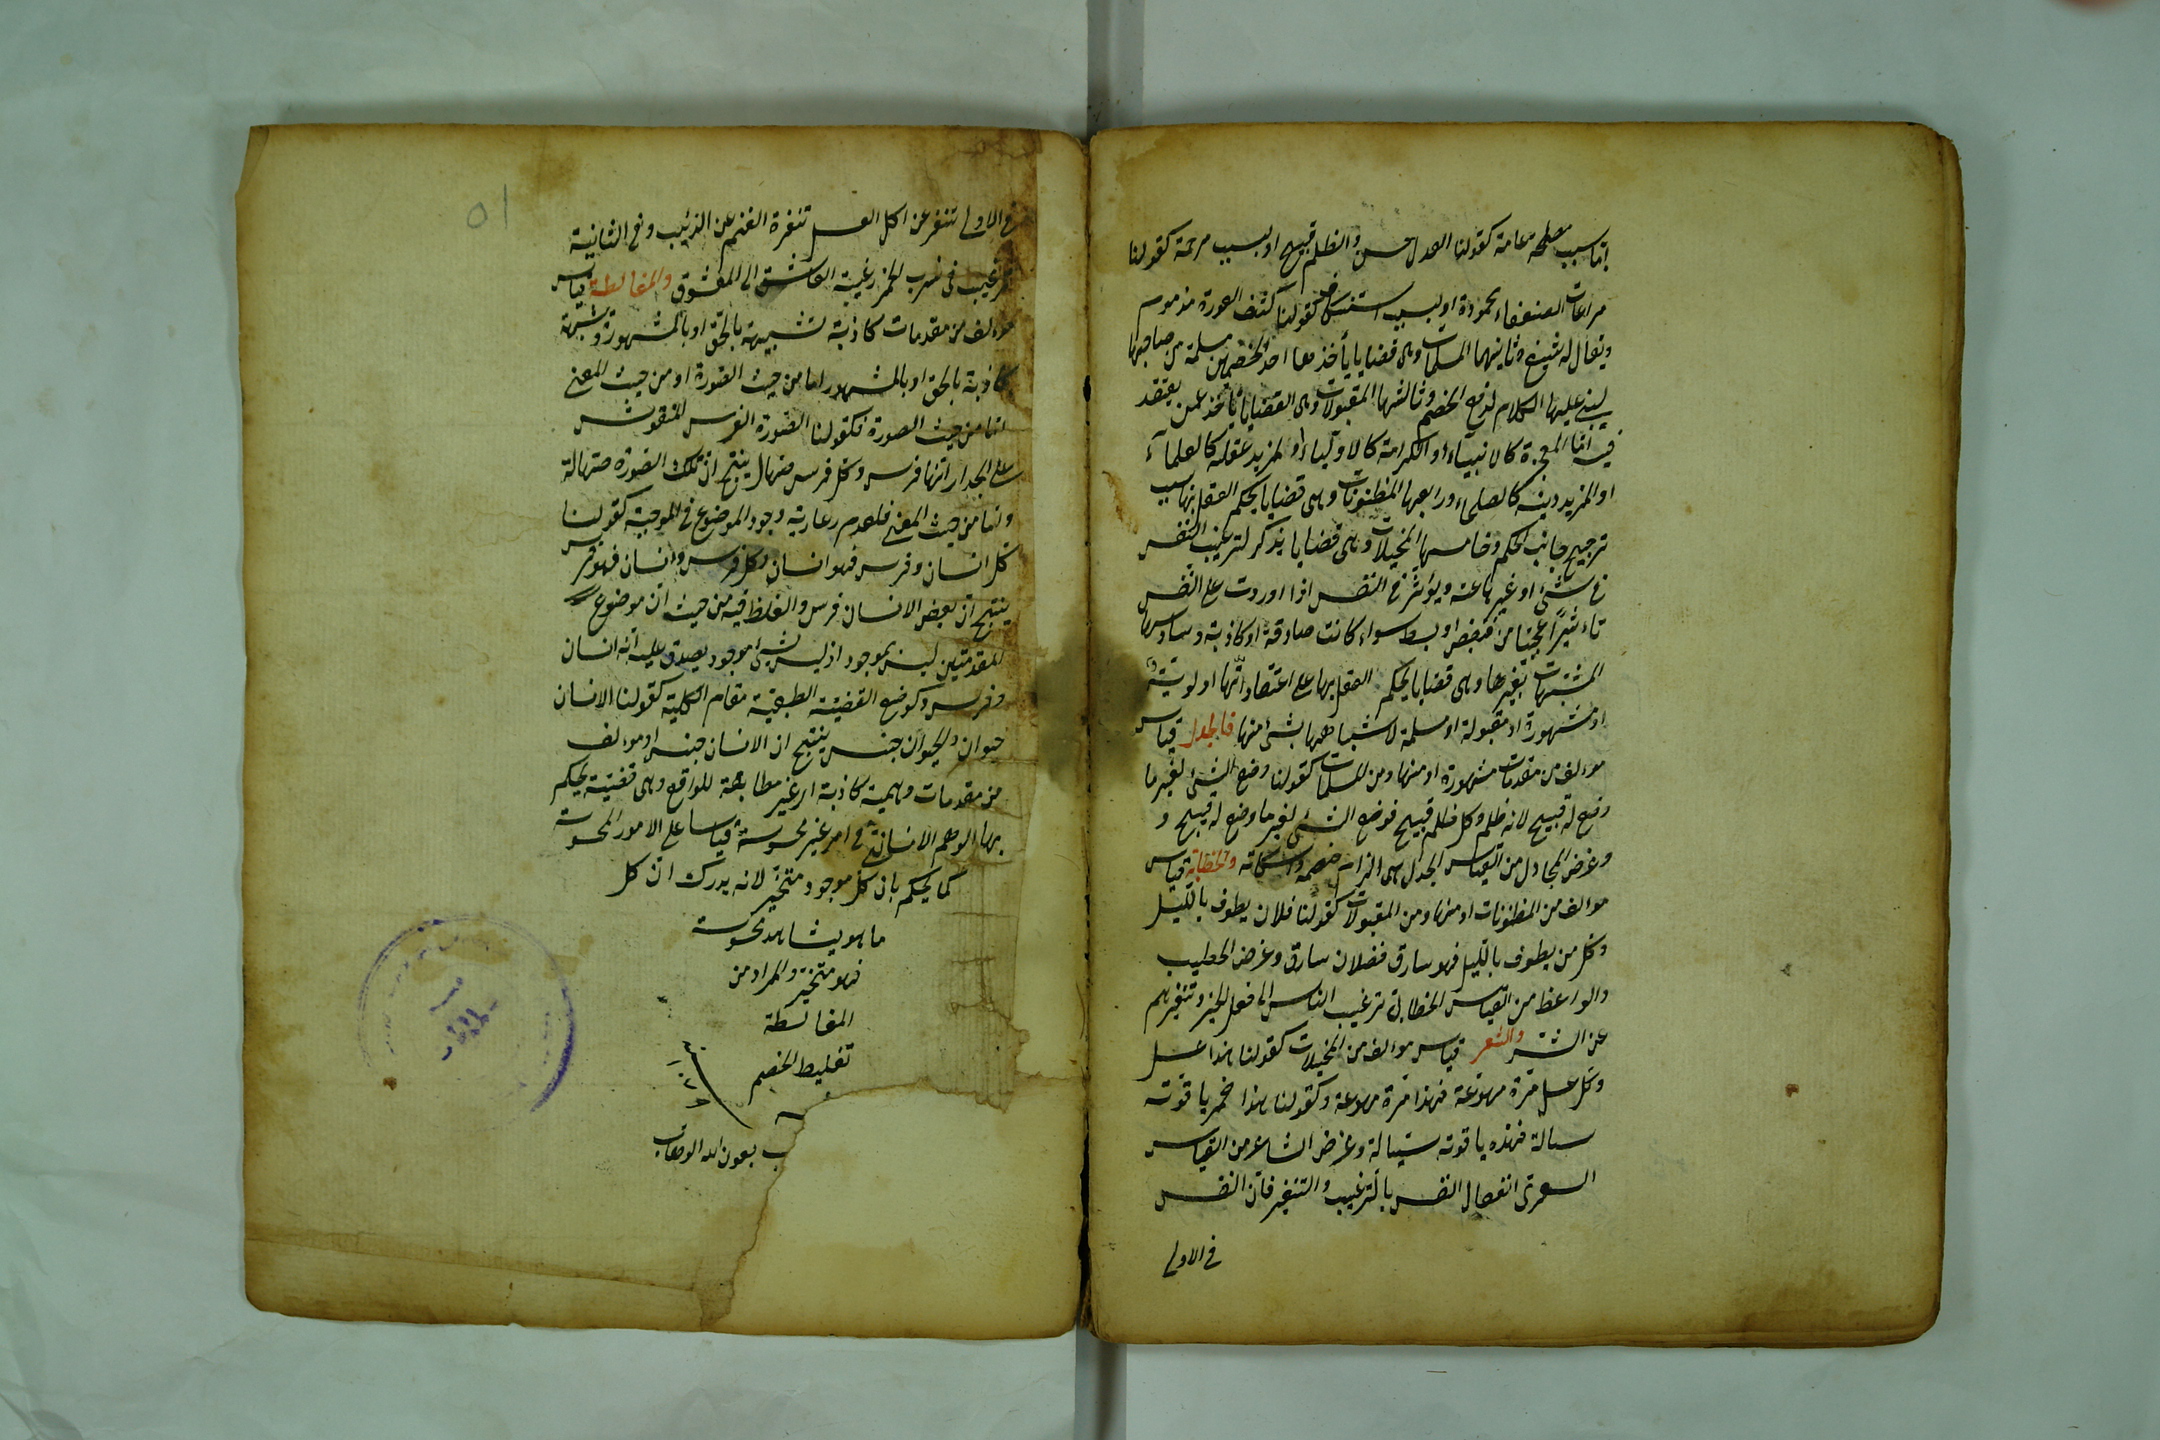 اما بسبب مصلحة عامة كقولنا العدل حسن والظلم قبيح او بسبب مرحمة كقولنا
مراعات الضعفاء محمودة او بسبب استنكاف كقولنا كشف العورة مذموم
ويقال له شنيع وثانيهما المسلمات وهى قضايا يأخذها احد الخصمين مسلمة من صاحبها
ليبنى عليها الكلام لدفع الخصم وثالثها المقبولات وهى القضايا تأخذ عمن يعتقد
فيه اما المعجزة كالانبياء او الكرامة كالاولياء او لمزيد عقله كالعلماء
او لمزيد دينه كالصلحاء ورابعها المظنونات وهى قضايا يحكم العقل بها بسبب
ترجيح جانب الحكم وخامسها المخيلات وهى قضايا يذكر لترغيب النفس
فى شئ او غيرها عنه ويؤثر فى النفس اذا اوردت على النفس
تاءثيرا عجيبا من قبض او بسط سواء كانت صادقة او كاذبة وسادسها
المشبهات بغيرها وهى قضايا يحكم العقل بها على اعتقاد انها اولوية
او مشهورة او مقبولة او مسلمة لاشباهها بشئ منها فالجدل قياس
موالف من مقدمات مشهورة او منها ومن المسلمات كقولنا وضع الشئ لغير ما
وضع له قبيح لانه ظلم وكل ظلم قبيح فوضع الشئ لغير ما وضع له قبيح و
وغرض المجادل من القياس الجدل هى الزام خصمه واسكاته والخطابة قياس
موالف من المظنونات او منها ومن المقبولات كقولنا فلان يطوف بالليل
وكل من يطوف بالليل فهو سارق ففلان سارق وغرض الخطيب
والواعظ من القياس الخطابى ترغيب الناس الى فعل الخير وتنفيرهم
عن الشر والشعر قياس موالف من المخيلات كقولنا هذا عسل
وكل عسل مرة مهوعة فهذا مرة مهوعة وكقولنا هذا خمر ياقوته
سيالة فهذه ياقوته سيالة وغرض الشاعر من القياس
الشعرى انفعال النفس بالترغيب والتنفير فان النفس
فى الاولى
فى الاولى تنفر عن اكل العسل تنفرة الغنم عن الذئب وفى الثانية
ترغيب فى شرب الخمر رغبة العاشق الى المعشوق والمغالطة قياس
موءلف من مقدمات كاذبة شبيهة بالحق او بالمشهورة وشبهة
كاذبة بالحق او بالمشهور اما من حيث الصورة او من حيث المعنى
اما من حيث الصورة فكقولنا الصورة الفرس المنقوش
على الجدار انها فرس وكل فرس صهال ينتج ان تلك الصورة صهالة
واما من حيث المعنى فلعدم رعاية وجود الموضوع فى الموجبة كقولنا
كل انسان وفرس فهو انسان وكل فرس وانسان فهو فرس
ينتج ان بعض الانسان فرس والغلط فيه من حيث ان موضوع
المقدمتين ليس بموجود اذ ليس شئ موجود يصدق عليه انه انسان
وفرس وكوضع القضية الطبعية مقام الكلية كقولنا الانسان
حيوان والحيوان جنس ينتج ان الانسان جنس او موءلف
من مقدمات وهمية كاذبة اى غير مطابقة للواقع وهى قضية يحكم
بها الوهم الانسانى فى امر غير محسوسة قياسا على الامور المحسوسة
كما يحكم بان كل موجود متحيز لانه يدرك ان كل
ما هو يشاهد محسوسة
فهو متحيز والمراد من
المغالطة
تغليط الخصم
بعون الله الوهاب